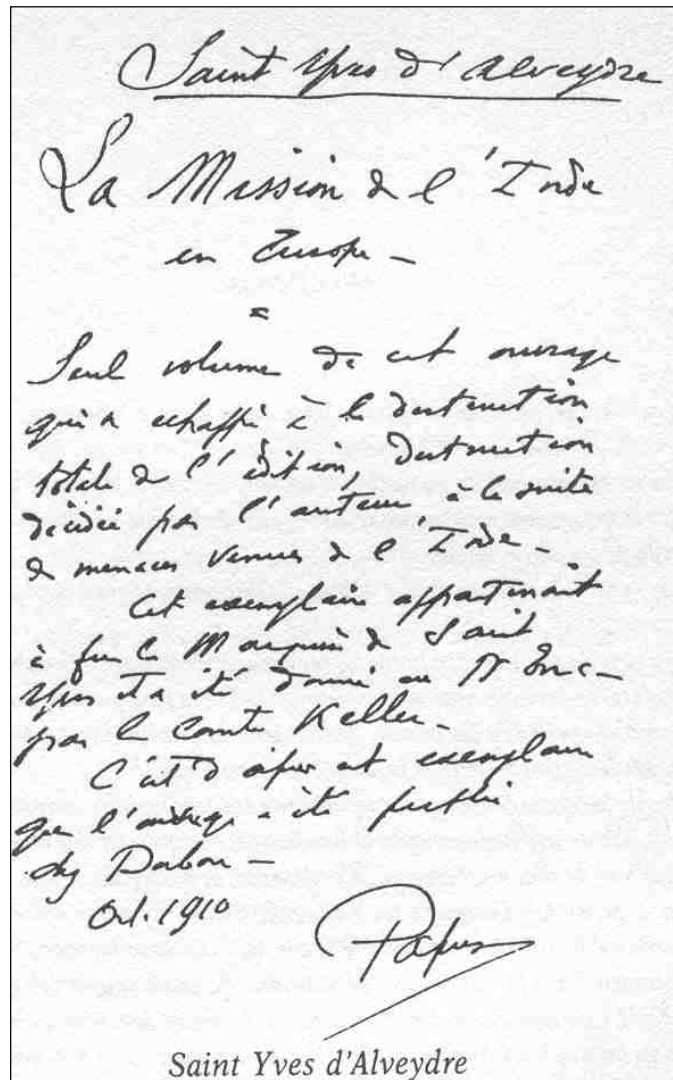 Saint Yves d'Alveydre
La Mission de l'Inde
en Europe —
Seul volume de cet ouvrage
qui a echappé à la destruction
totale de l'édition, destruction
décidée par l'auteur à la suite
de menaces venues de l'Inde —
Cet exemplaire appartenait
à feu le Marquis de Saint
Yves et a été donné au Dr Enc—
par le comte Keller —
C'est d'après cet exemplaire
que l'ouvrage a été publié
chez Dorbon —
Oct. 1910
Papus
Saint Yves d'Alveydre